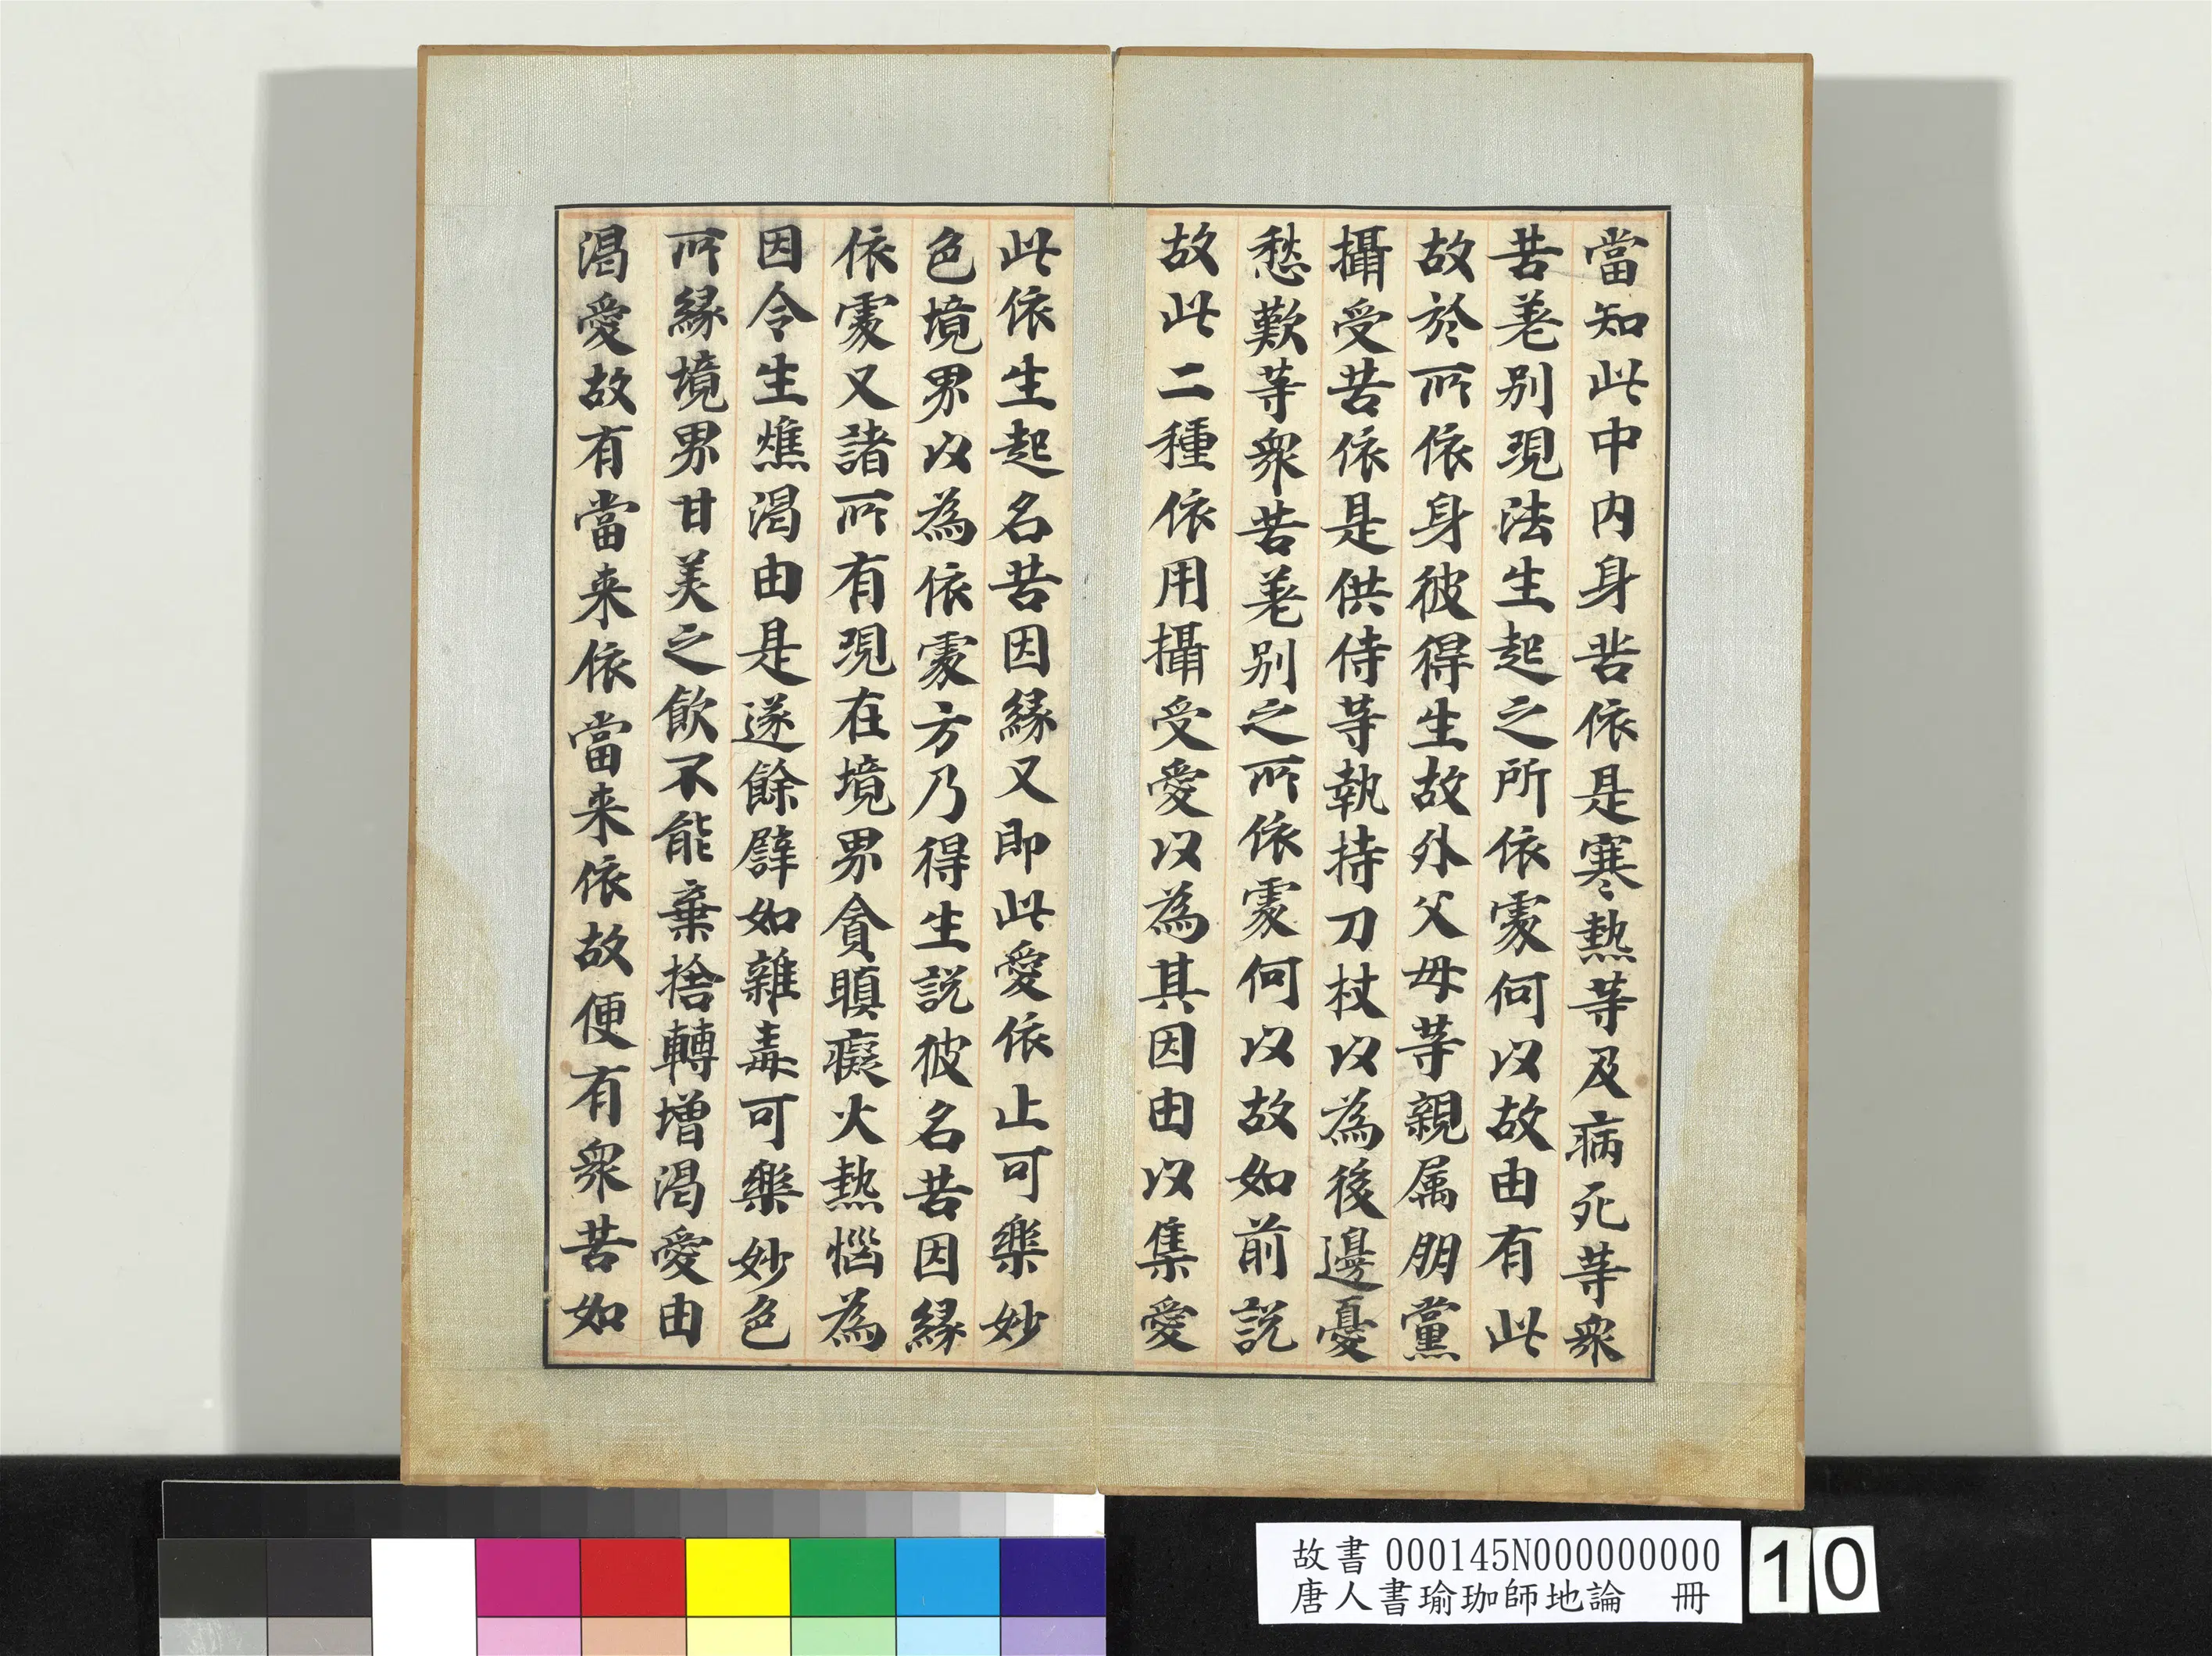 當知此中内身苦依是寒熱等及病死等衆
苦差别現法生起之所依處何以故由有此
故於所依身彼得生故外父母等親属朋黨
攝受苦依是供侍等執持刀杖以為後邊憂
愁歎等衆苦差别之所依處何以故如前説
故此二種依用攝受愛以為其因由以集愛
此依生起名苦因縁又即此愛依止可樂妙
色境界以為依處方乃得生説彼名苦因縁
依處又諸所有現在境界貪瞋癡火熱惱為
因令生燋渴由是遂餘譬如雜毒可樂妙色
所縁境界甘美之飲不能棄捨轉增渴愛由
渴愛故有當来依當来依故便有衆苦如
故書 000145N000000000
唐人書瑜珈師地論 冊
10